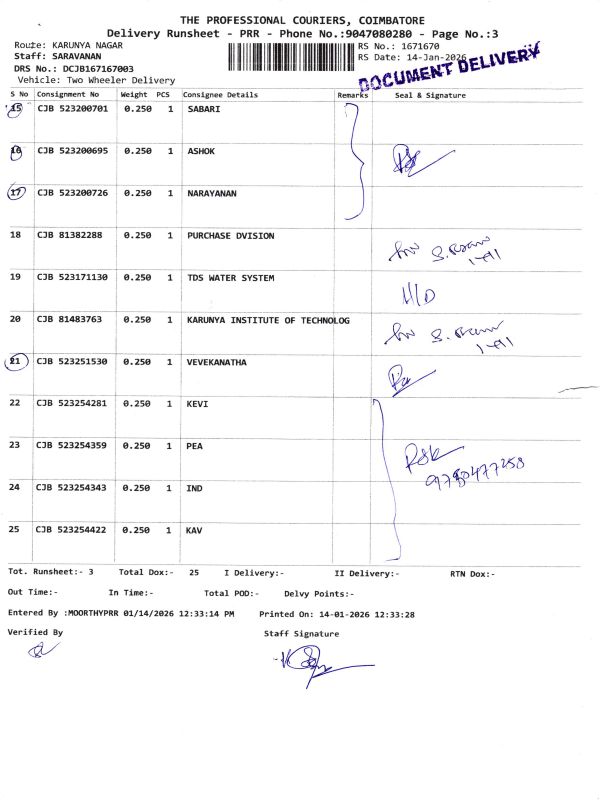 THE PROFESSIONAL COURIERS, COIMBATORE
Delivery Runsheet - PRR - Phone No.:9047080280 - Page No.:3
Route: KARUNYA NAGAR
RS No.: 1671670
Staff: SARAVANAN
RS Date: 14-Jan-2026
DRS No.: DCJB167167003
DOCUMENT DELIVERY
Vehicle: Two Wheeler Delivery
S No Consignment No Weight PCS Consignee Details Remarks Seal & Signature
15 CJB 523200701 0.250 1 SABARI
16 CJB 523200695 0.250 1 ASHOK
17 CJB 523200726 0.250 1 NARAYANAN
18 CJB 81382288 0.250 1 PURCHASE DVISION
19 CJB 523171130 0.250 1 TDS WATER SYSTEM
20 CJB 81483763 0.250 1 KARUNYA INSTITUTE OF TECHNOLOG
21 CJB 523251530 0.250 1 VEVEKANATHA
22 CJB 523254281 0.250 1 KEVI
23 CJB 523254359 0.250 1 PEA
24 CJB 523254343 0.250 1 IND
25 CJB 523254422 0.250 1 KAV
Tot. Runsheet:- 3 Total Dox:- 25 I Delivery:- II Delivery:- RTN Dox:-
Out Time:- In Time:- Total POD:- Delvy Points:-
Entered By :MOORTHYPRR 01/14/2026 12:33:14 PM Printed On: 14-01-2026 12:33:28
Verified By Staff Signature